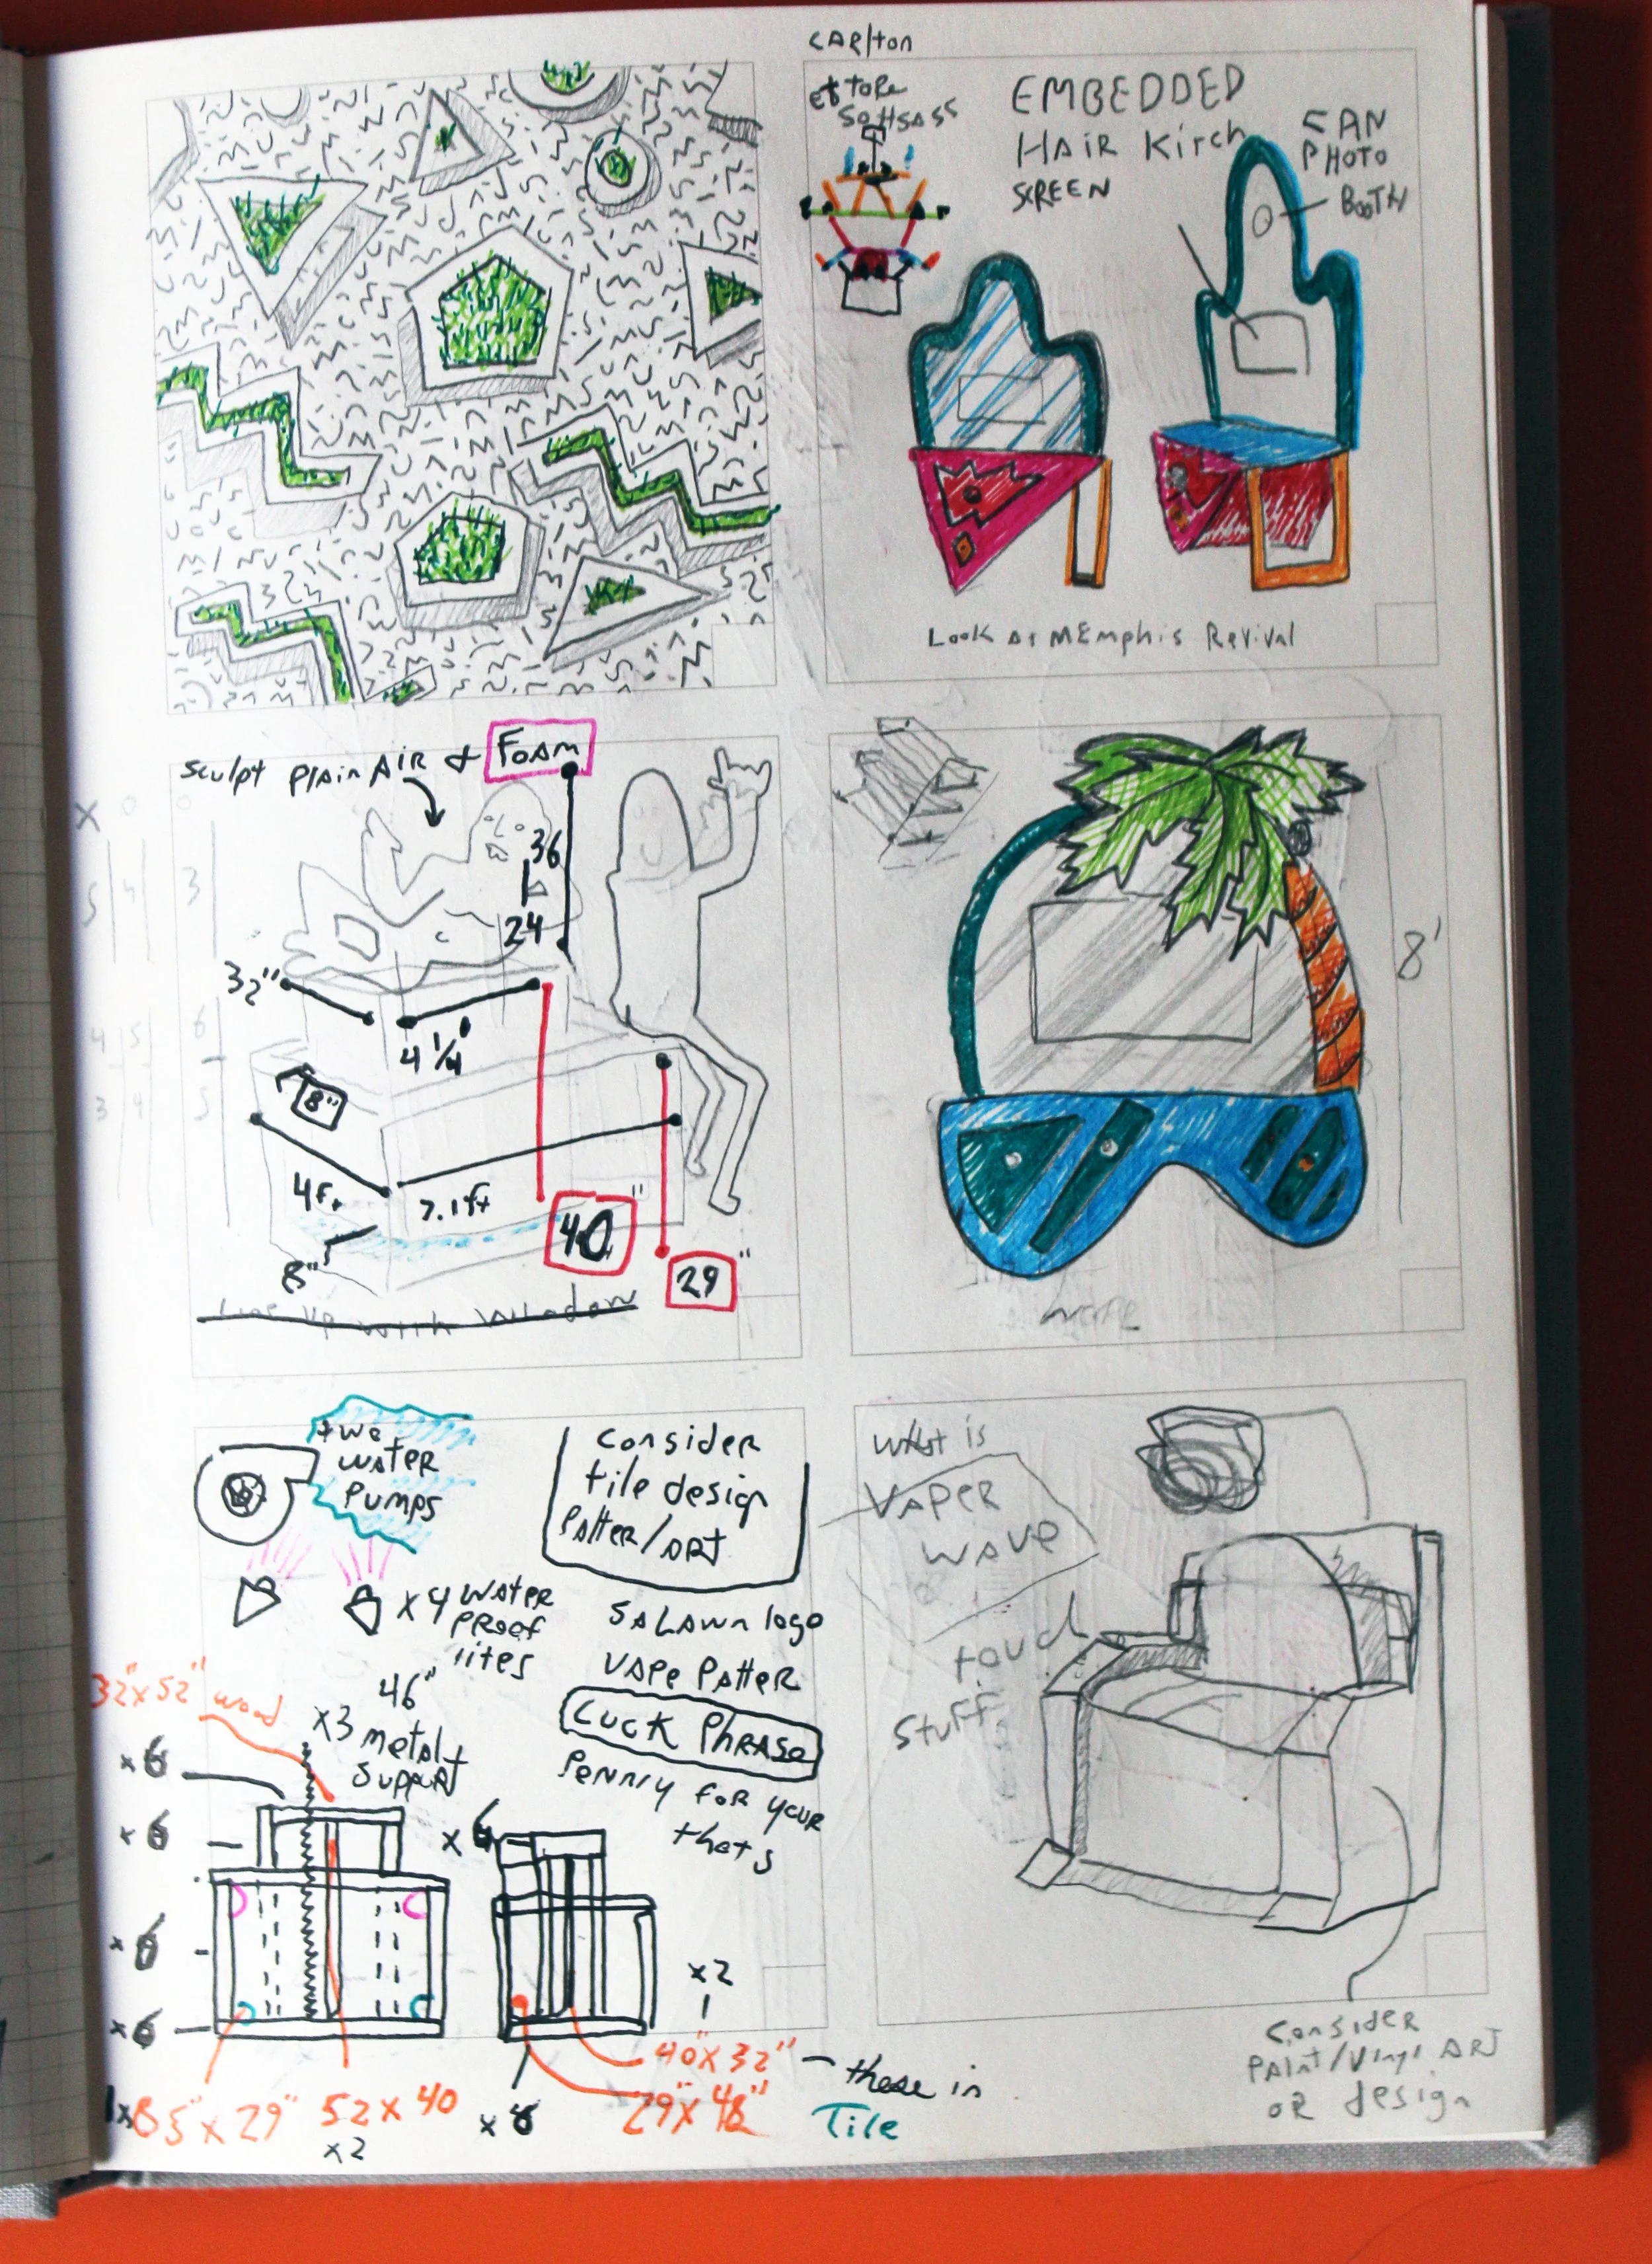 CARlton
ettore
SottsASS
EMBEDDED
HAIR Kirch
SCREEN
FAN
PHOTO
BOOTH
Look At MEmphis Revival
Sculpt PlAin AIR & FOAM
36
24
32"
4 1/4'
18"
4ft
7.1ft
8"
40"
29"
Line up with window
8'
two
WATER
Pumps
Consider
tile design
PAtteR/ARt
x4 WATER
PRoof
lites
SALAwn logo
VAPE PAtteR
Luck PhRASe
Penny foR your
thots
32"x52" wood
46"
x3 metal
Support
x6
x6
x6
x6
x6
x2
40"x32" — these in
29"x48" Tile
85"x29"
52x40
x2
What is
VAPER
WAVE
touch
Stuff
Consider
PAint/Vinyl ARt
oR design